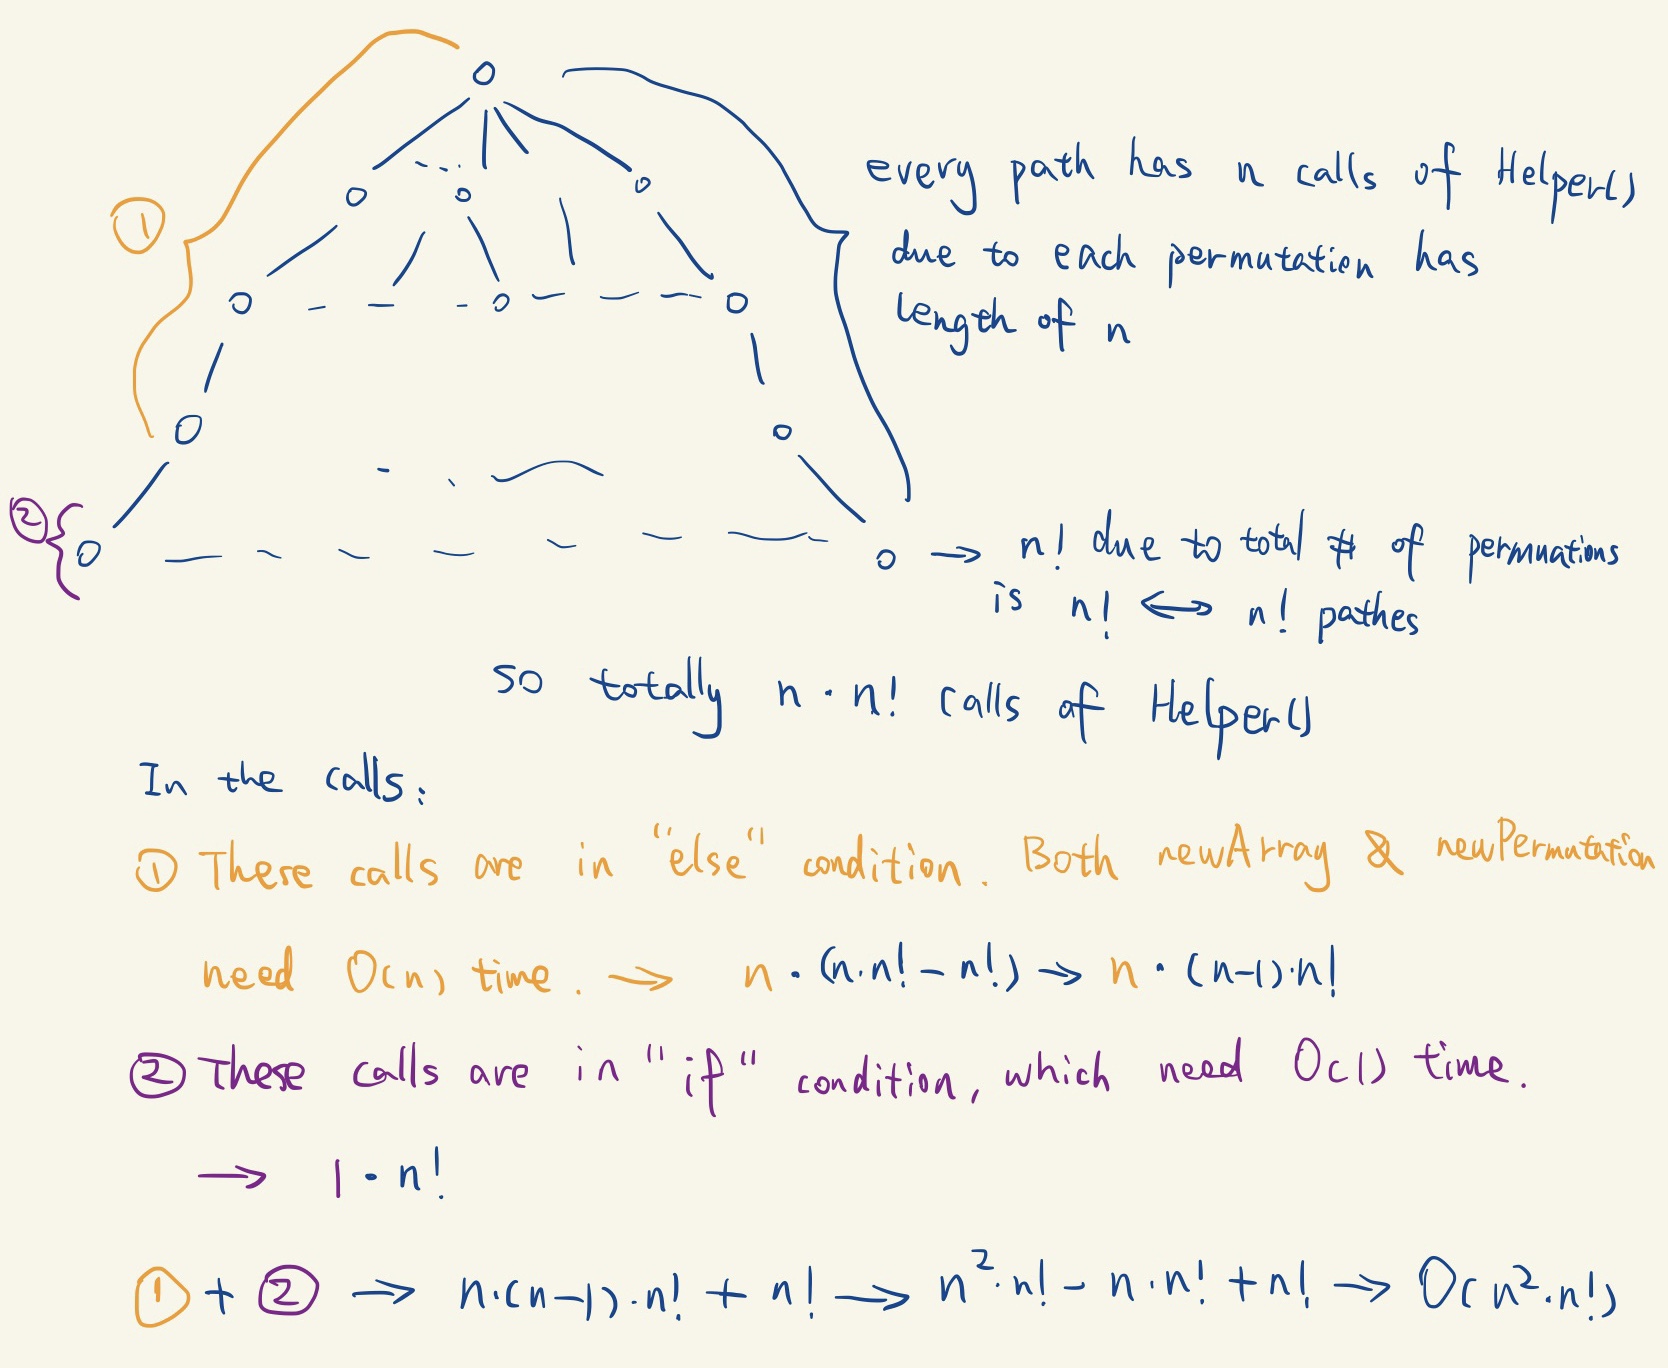 ①
every path has n calls of Helper()
due to each permutation has
length of n
②
→ n! due to total # of permuations
is n! ↔ n! pathes
so totally n · n! calls of Helper()
In the calls:
① These calls are in "else" condition. Both newArray & newPermutation
need O(n) time. → n · (n·n! - n!) → n · (n-1)·n!
② These calls are in "if" condition, which need O(1) time.
→ 1 · n!
① + ② → n·(n-1)·n! + n! → n²·n! - n·n! + n! → O(n²·n!)